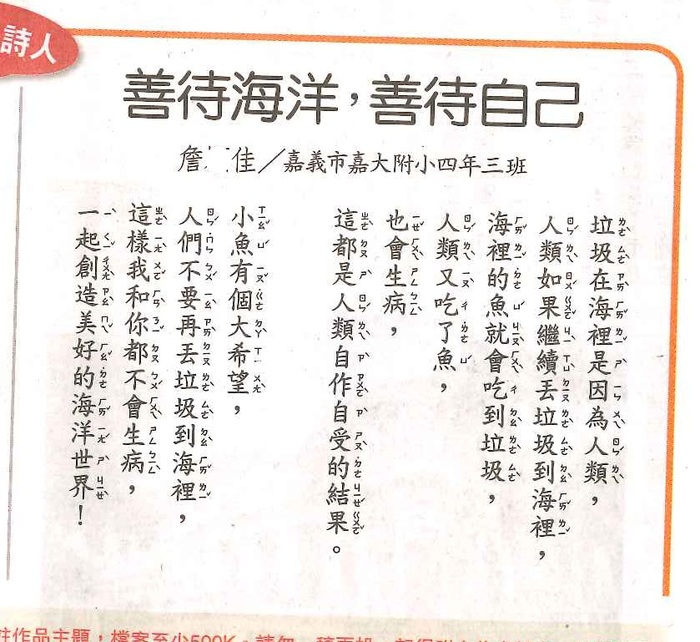 詩人
善待海洋，善待自己
詹 佳／嘉義市嘉大附小四年三班
垃圾在海裡是因為人類，
人類如果繼續丟垃圾到海裡，
海裡的魚就會吃到垃圾，
人類又吃了魚，
也會生病，
這都是人類自作自受的結果。
小魚有個大希望，
人們不要再丟垃圾到海裡，
這樣我和你都不會生病，
一起創造美好的海洋世界！
作品主題，檔案至少500K。請勿一稿兩投